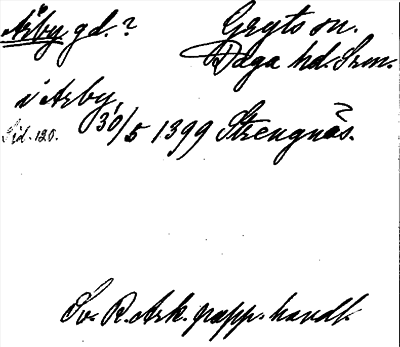 Åby, gd.? Gryts sn.
Daga hd. Srm.
i Arby,
Sid. 120. 30/5 1399 Strengnäs.
Sv. R. Ark. papp. handl.